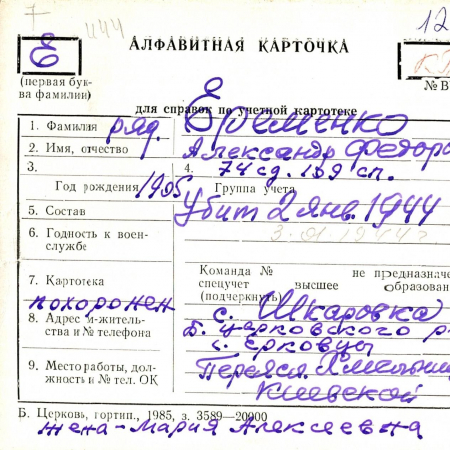 7 1144
Е АЛФАВИТНАЯ КАРТОЧКА 12
(первая бук-
ва фамилии) № В
для справок по учетной картотеке
1. Фамилия ряд. Еременко
2. Имя, отчество Александр Федоро
3. 4. 74 сд. 109 сп.
Год рождения 1905 Группа учета
5. Состав Убит 2 янв. 1944
6. Годность к воен-
службе 3.01.1944 г.
Команда № не предназначе
7. Картотека спецучет высшее образован
похоронен (подчеркнуть) с. Шкаровка
8. Адрес жительства и № телефона Б. Церковского р
с. Ерковцы
9. Место работы, дол-
жность и № тел. ОК Переясл. Хмельниц
Киевской
Б. Церковь, гортип., 1985, з. 3589—20000
жена - Мария Алексеевна